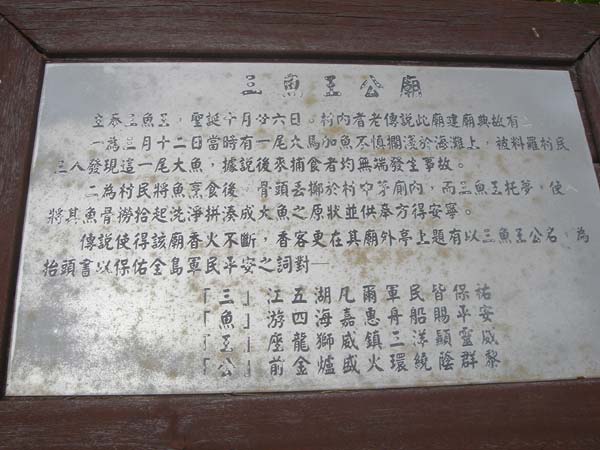 三魚王公廟
主奉三魚王，聖誕十月廿六日。村內耆老傳說此廟建廟典故有二
一為三月十二日當時有一尾大馬加魚不慎擱淺於海灘上，被料羅村民
三八發現這一尾大魚，據說後來捕食者均無端發生事故。
二為村民將魚烹食後，骨頭丟擲於村中茅廁內，而三魚王托夢，使人
將其魚骨撈拾起洗淨拼湊成大魚之原狀並供奉方得安寧。
傳說使得該廟香火不斷，香客更在其廟外亭上題有以三魚王公名，為
抬頭書以保佑全島軍民平安之詞對—
「三」江五湖凡爾軍民皆保祐
「魚」游四海嘉惠舟船賜平安
「王」座龍獅威鎮三洋顯靈威
「公」前金爐盛火環繞蔭群黎